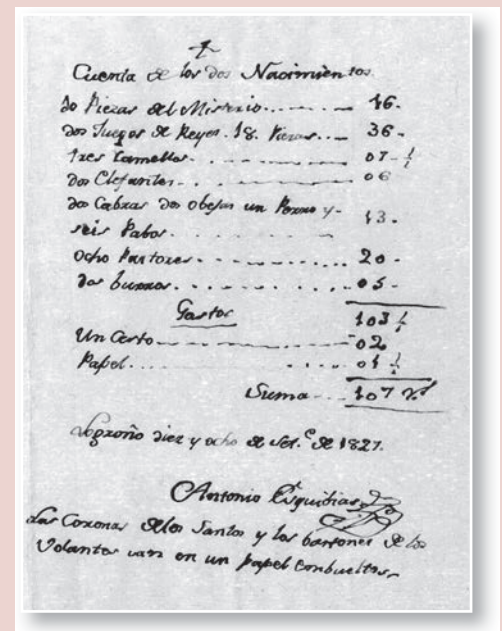 Cuenta de los dos Nacimientos.
Piezas del Misterio 16.
dos Juegos de Reyes. 18. Piezas 36.
tres Camellos 07 - ½
dos Elefantes 06
dos Cabras dos obejas un Perro y 13.
seis Pabos
ocho Pastores 20.
dos burros 05.
Gastos 103 ½
Un Cesto 02
Papel 01 ½
Suma 107 rs
Logroño diez y ocho de Set.e de 1827.
Antonio Esquibias
Las Coronas de los Santos y los bastones de los
Volantes van en un papel embueltos